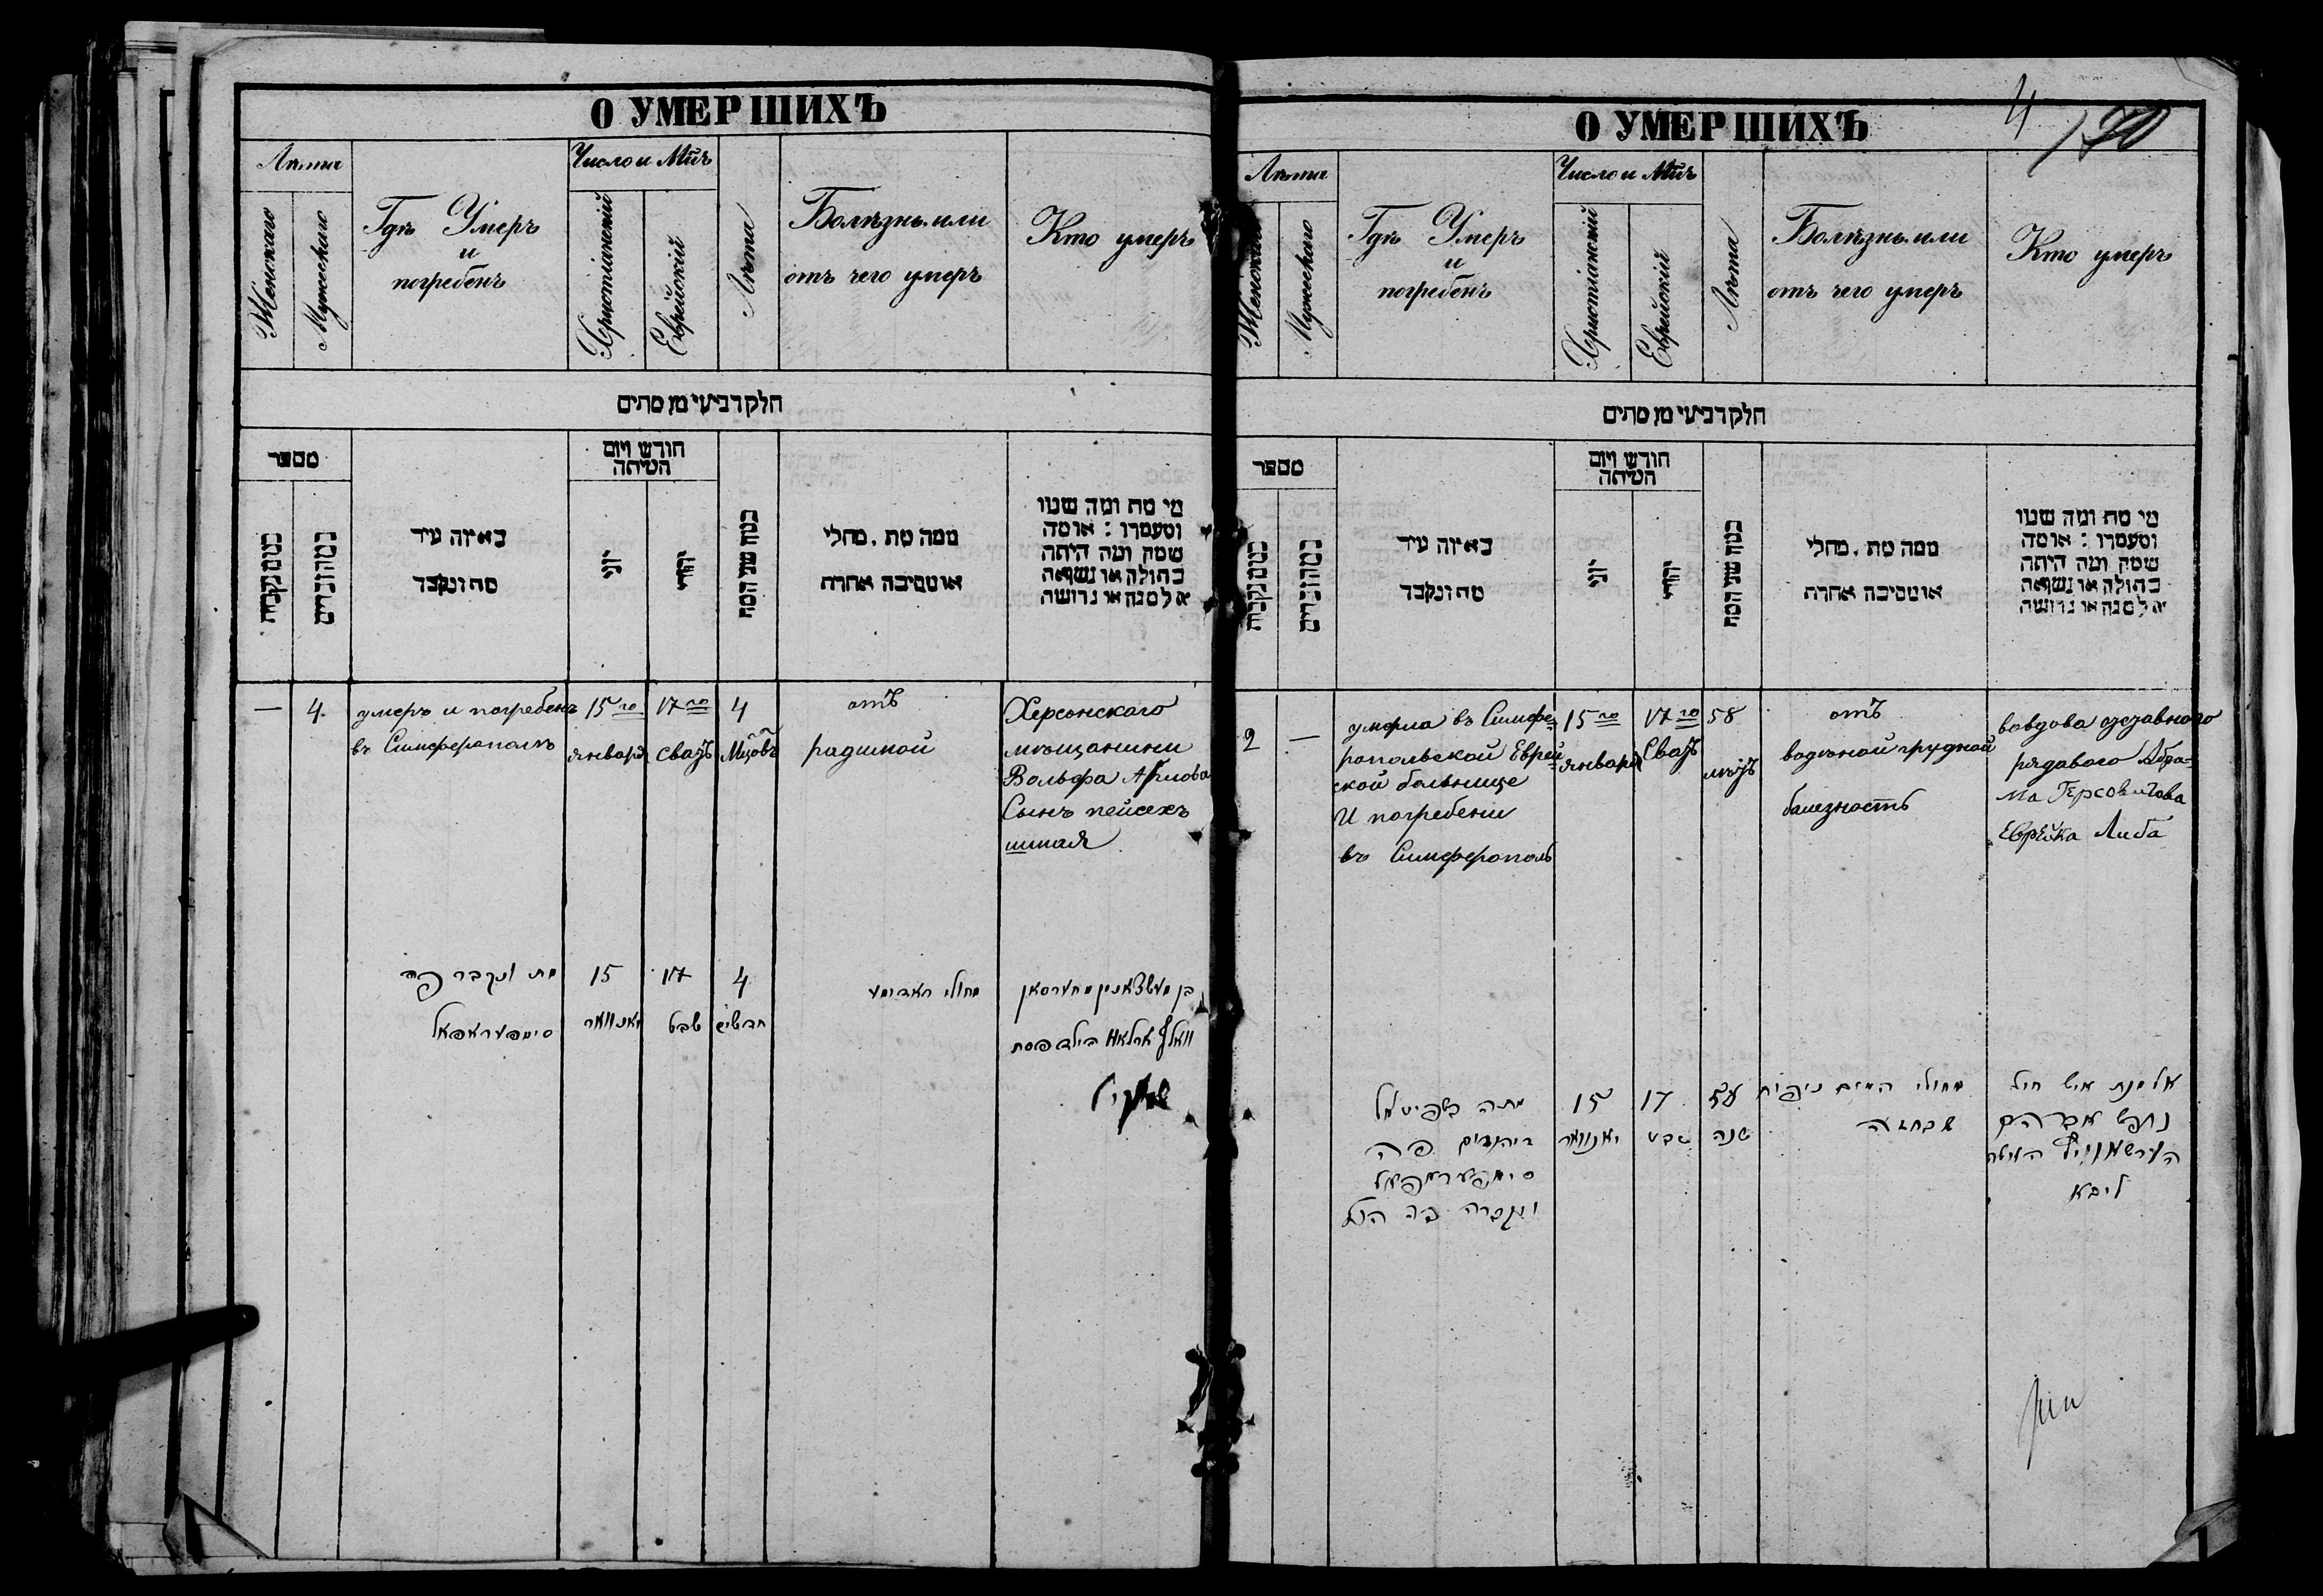 О УМЕРШИХЪ
Лѣта
Женскаго
Мужескаго
Гдѣ Умеръ
и
погребенъ
Число и Мцъ
Христіанскій
Еврейскій
Лѣта
Болѣзнь или
отъ чего умеръ
Кто умеръ
חלק רביעי מן מתים
מספר
באיזה עיר
מת ונקבר
חודש ויום
המיתה
יוני
יהודי
כמה שני המת
ממה מת . מחלי
או מסיבה אחרת
מי מת ומה שמו
ומעמדו : או מה
שמה ומה היתה
בתולה או נשואה
אלמנה או גרושה
—
4.
умеръ и погребенъ
въ Симферополѣ
15го
января
17го
Сватъ
4
Мцовъ
отъ
родимой
Херсонскаго
мѣщанина
Вольфа
Сынъ пейсехъ
מת ונקבר פה
סימפעראפאל
15
יאנוואר
17
שבט
4
חדשים
מחולי
בן
וואלף הילד פסח
4
190
О УМЕРШИХЪ
Лѣта
Женскаго
Мужескаго
Гдѣ Умеръ
и
погребенъ
Число и Мцъ
Христіанскій
Еврейскій
Лѣта
Болѣзнь или
отъ чего умеръ
Кто умеръ
חלק רביעי מן מתים
מספר
באיזה עיר
מת ונקבר
חודש ויום
המיתה
יוני
יהודי
כמה שני המת
ממה מת . מחלי
או מסיבה אחרת
מי מת ומה שמו
ומעמדו : או מה
שמה ומה היתה
בתולה או נשואה
אלמנה או גרושה
2
—
умерла въ Симфе-
ропольской Еврей-
ской больнице
И погребени
въ Симферополь
15го
января
17го
Сватъ
58
лѣтъ
отъ
водяной грудной
болезность
вовдова
рядавого Абра-
ма Герсовичова
Еврейка Либа
מתה
היהודים פה
סימפעראפאל
ונקברה פה הנל
15
יאנוואר
17
שבט
58
שנה
מחולי המים
שבחזה
אלמנת איש חיל
אברהם
ליבא